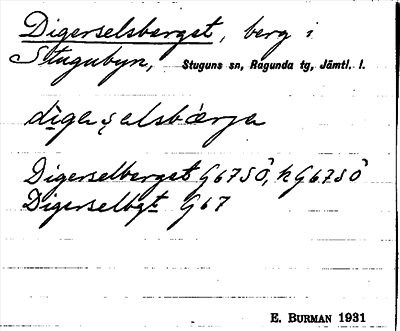 Digerselsberget, berg i
Stugubyn, Stuguns sn, Ragunda tg, Jämtl. l.
digaşalsbærja
Digerselberget G67SÖ, hG67SÖ
Digerselbgt G67
E. BURMAN 1931